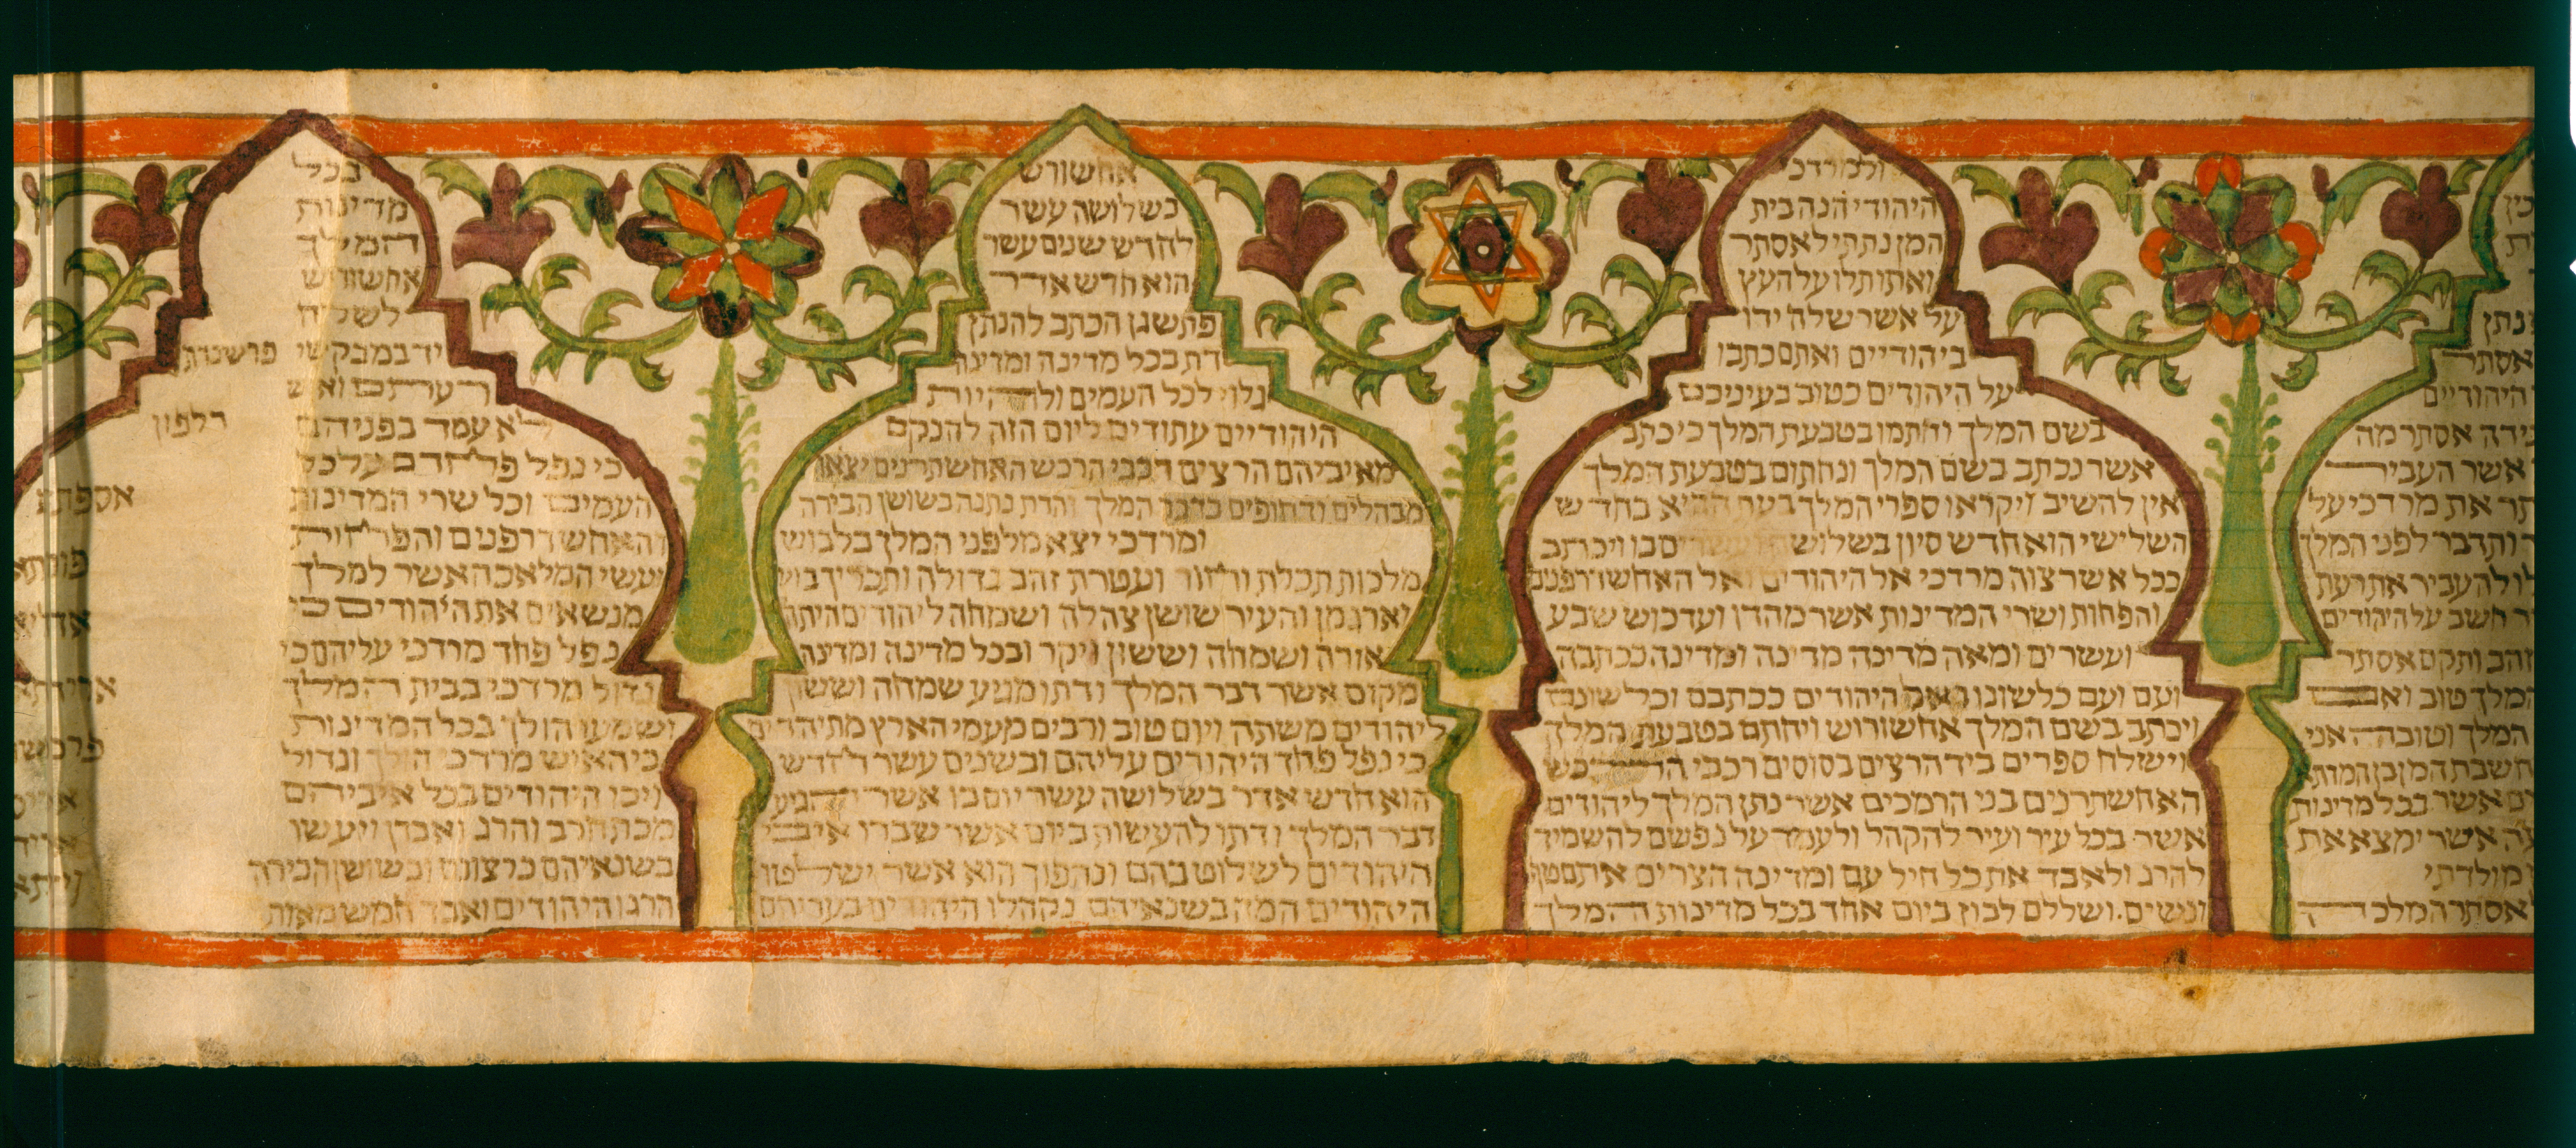 נתן
אסתר
היהודיים
אסתר מה
אשר העביר
את מרדכי על
ותדבר לפני המלך
להעביר את רעת
חשב על היהודים
זהב ותקם אסתר
המלך טוב ואם
המלך וטובה אני
המן בן המדתא
אשר בכל מדינות
אשר ימצא את
מולדתי
לאסתר המלכה
ולמרדכי
היהודי הנה בית
המן נתתי לאסתר
ואתו תלו על העץ
על אשר שלח ידו
ביהודיים ואתם כתבו
על היהודים כטוב בעיניכם
בשם המלך וחתמו בטבעת המלך כי כתב
אשר נכתב בשם המלך ונחתום בטבעת המלך
אין להשיב ויקראו ספרי המלך בעת ההיא בחדש
השלישי הוא חדש סיון בשלושה ועשרים בו ויכתב
ככל אשר צוה מרדכי אל היהודים ואל האחשדרפנים
והפחות ושרי המדינות אשר מהדו ועד כוש שבע
ועשרים ומאה מדינה מדינה ומדינה ככתבה
ועם ועם כלשונו ואל היהודים ככתבם וכלשונם
ויכתב בשם המלך אחשורוש ויחתם בטבעת המלך
וישלח ספרים ביד הרצים בסוסים רכבי הרכש
האחשתרנים בני הרמכים אשר נתן המלך ליהודים
אשר בכל עיר ועיר להקהל ולעמד על נפשם להשמיד
להרג ולאבד את כל חיל עם ומדינה הצרים אתם טף
ונשים ושללם לבוז ביום אחד בכל מדינות המלך
אחשורש
בשלושה עשר
לחדש שנים עשר
הוא חדש אדר
פתשגן הכתב להנתן
דת בכל מדינה ומדינה
גלוי לכל העמים ולהיות
היהודיים עתודים ליום הזה להנקם
מאיביהם הרצים רכבי הרכש האחשתרנים יצאו
מבהלים ודחופים בדבר המלך והדת נתנה בשושן הבירה
ומרדכי יצא מלפני המלך בלבוש
מלכות תכלת וחור ועטרת זהב גדולה ותכריך בוץ
וארגמן והעיר שושן צהלה ושמחה ליהודים היתה
אורה ושמחה וששון ויקר ובכל מדינה ומדינה
מקום אשר דבר המלך ודתו מגיע שמחה וששון
ליהודים משתה ויום טוב ורבים מעמי הארץ מתיהדים
כי נפל פחד היהודים עליהם ובשנים עשר לחדש
הוא חדש אדר בשלושה עשר יום בו אשר הגיע
דבר המלך ודתו להעשות ביום אשר שברו איבי
היהודים לשלוט בהם ונהפוך הוא אשר ישלטו
היהודים המה בשנאיהם נקהלו היהודים בעריהם
בכל
מדינות
המלך
אחשורוש
לשלח
יד במבקשי
רעתם ואיש
לא עמד בפניהם
כי נפל פחדם על כל
העמים וכל שרי המדינות
והאחשדרפנים והפחות
ועשי המלאכה אשר למלך
מנשאים את היהודים כי
נפל פחד מרדכי עליהם כי
גדול מרדכי בבית המלך
ושמעו הולך בכל המדינות
כי האיש מרדכי הולך וגדול
ויכו היהודים בכל איביהם
מכת חרב והרג ואבדן ויעשו
בשנאיהם כרצונם ובשושן הבירה
הרגו היהודים ואבד חמש מאות
פרשנדתא
דלפון
אספתא